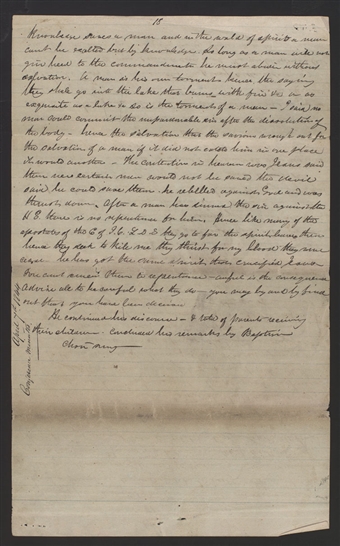 18
Knowledge saves a man and in the world of spirits a man
cant be exalted but by knowledge. So long as a man will not
give heed to the commandments he must abide without
salvation. A man is his own tormentor hence the saying
they shall go into the lake that burns with fire &c as
exquisite as a lake so is the torment of a man — I said no
man could commit the unpardonable sin after the dissolution of
the body — hence the salvation that the savior wrought out for
the salvation of a man if it did not catch him in one place
it would another — The contention in heaven was Jesus said
there were certain man would not be saved the devil
said he could save them he rebelled against God and was
thrust down. After a man has sinned the sin against the
H. G. there is no repentance for him, hence like many of the
apostates of the C of J C L D S they go to far the spirit leaves them
hence they seek to kill me they thirst for my blood they never
cease he has got the same spirit that crucified Jesus
You cant renew them to repentance — awful is the consequence
advise all to be careful what they do — you may by and by find
out that you have been deceived
He continued his discourse — & told of parents receiving
their children — concluded his remarks by Baptism
Choir sung —
April 7th 1844